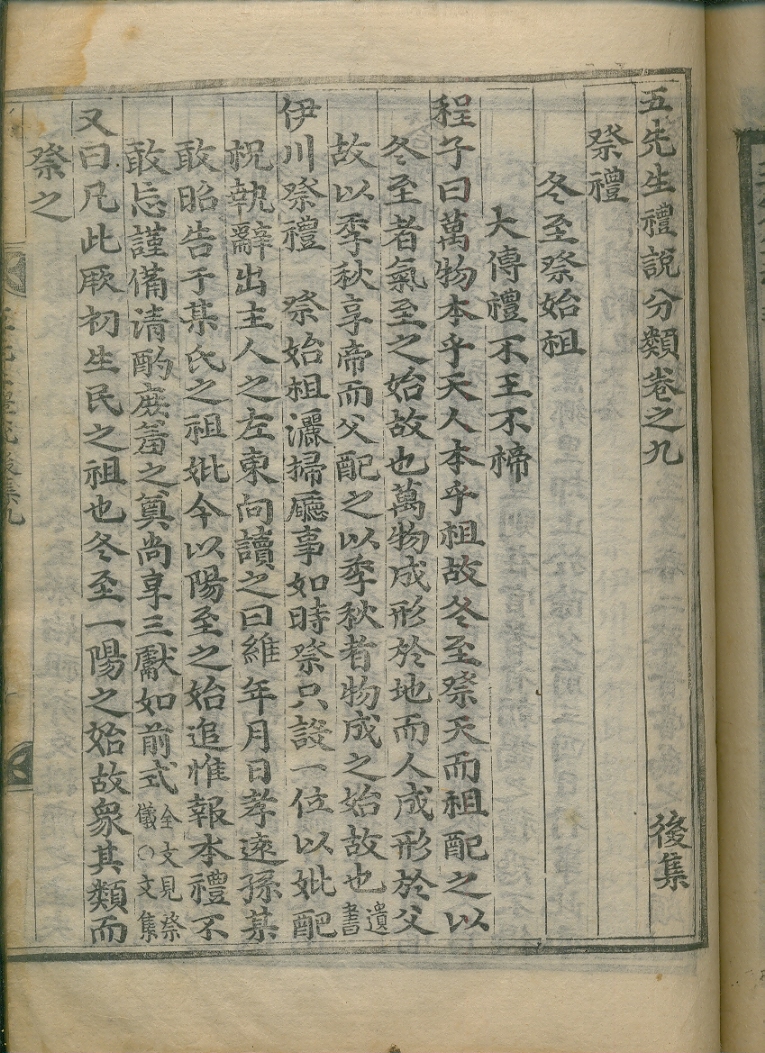 五先生禮說分類卷之九 後集
祭禮
冬至祭始祖
大傳禮不王不禘
程子曰萬物本乎天人本乎祖故冬至祭天而祖配之以
冬至者氣至之始故也萬物成形於地而人成形於父
故以季秋享帝而父配之以季秋者物成之始故也遺書
伊川祭禮 祭始祖灑掃廳事如時祭只設一位以妣配
祝執辭出主人之左東向讀之曰維年月日孝遠孫某
敢昭告于某氏之祖妣今以陽至之始追惟報本禮不
敢忘謹備清酌庶羞之奠尚享三獻如前式全文見祭儀○文集
又曰凡此厥初生民之祖也冬至一陽之始故象其類而
祭之